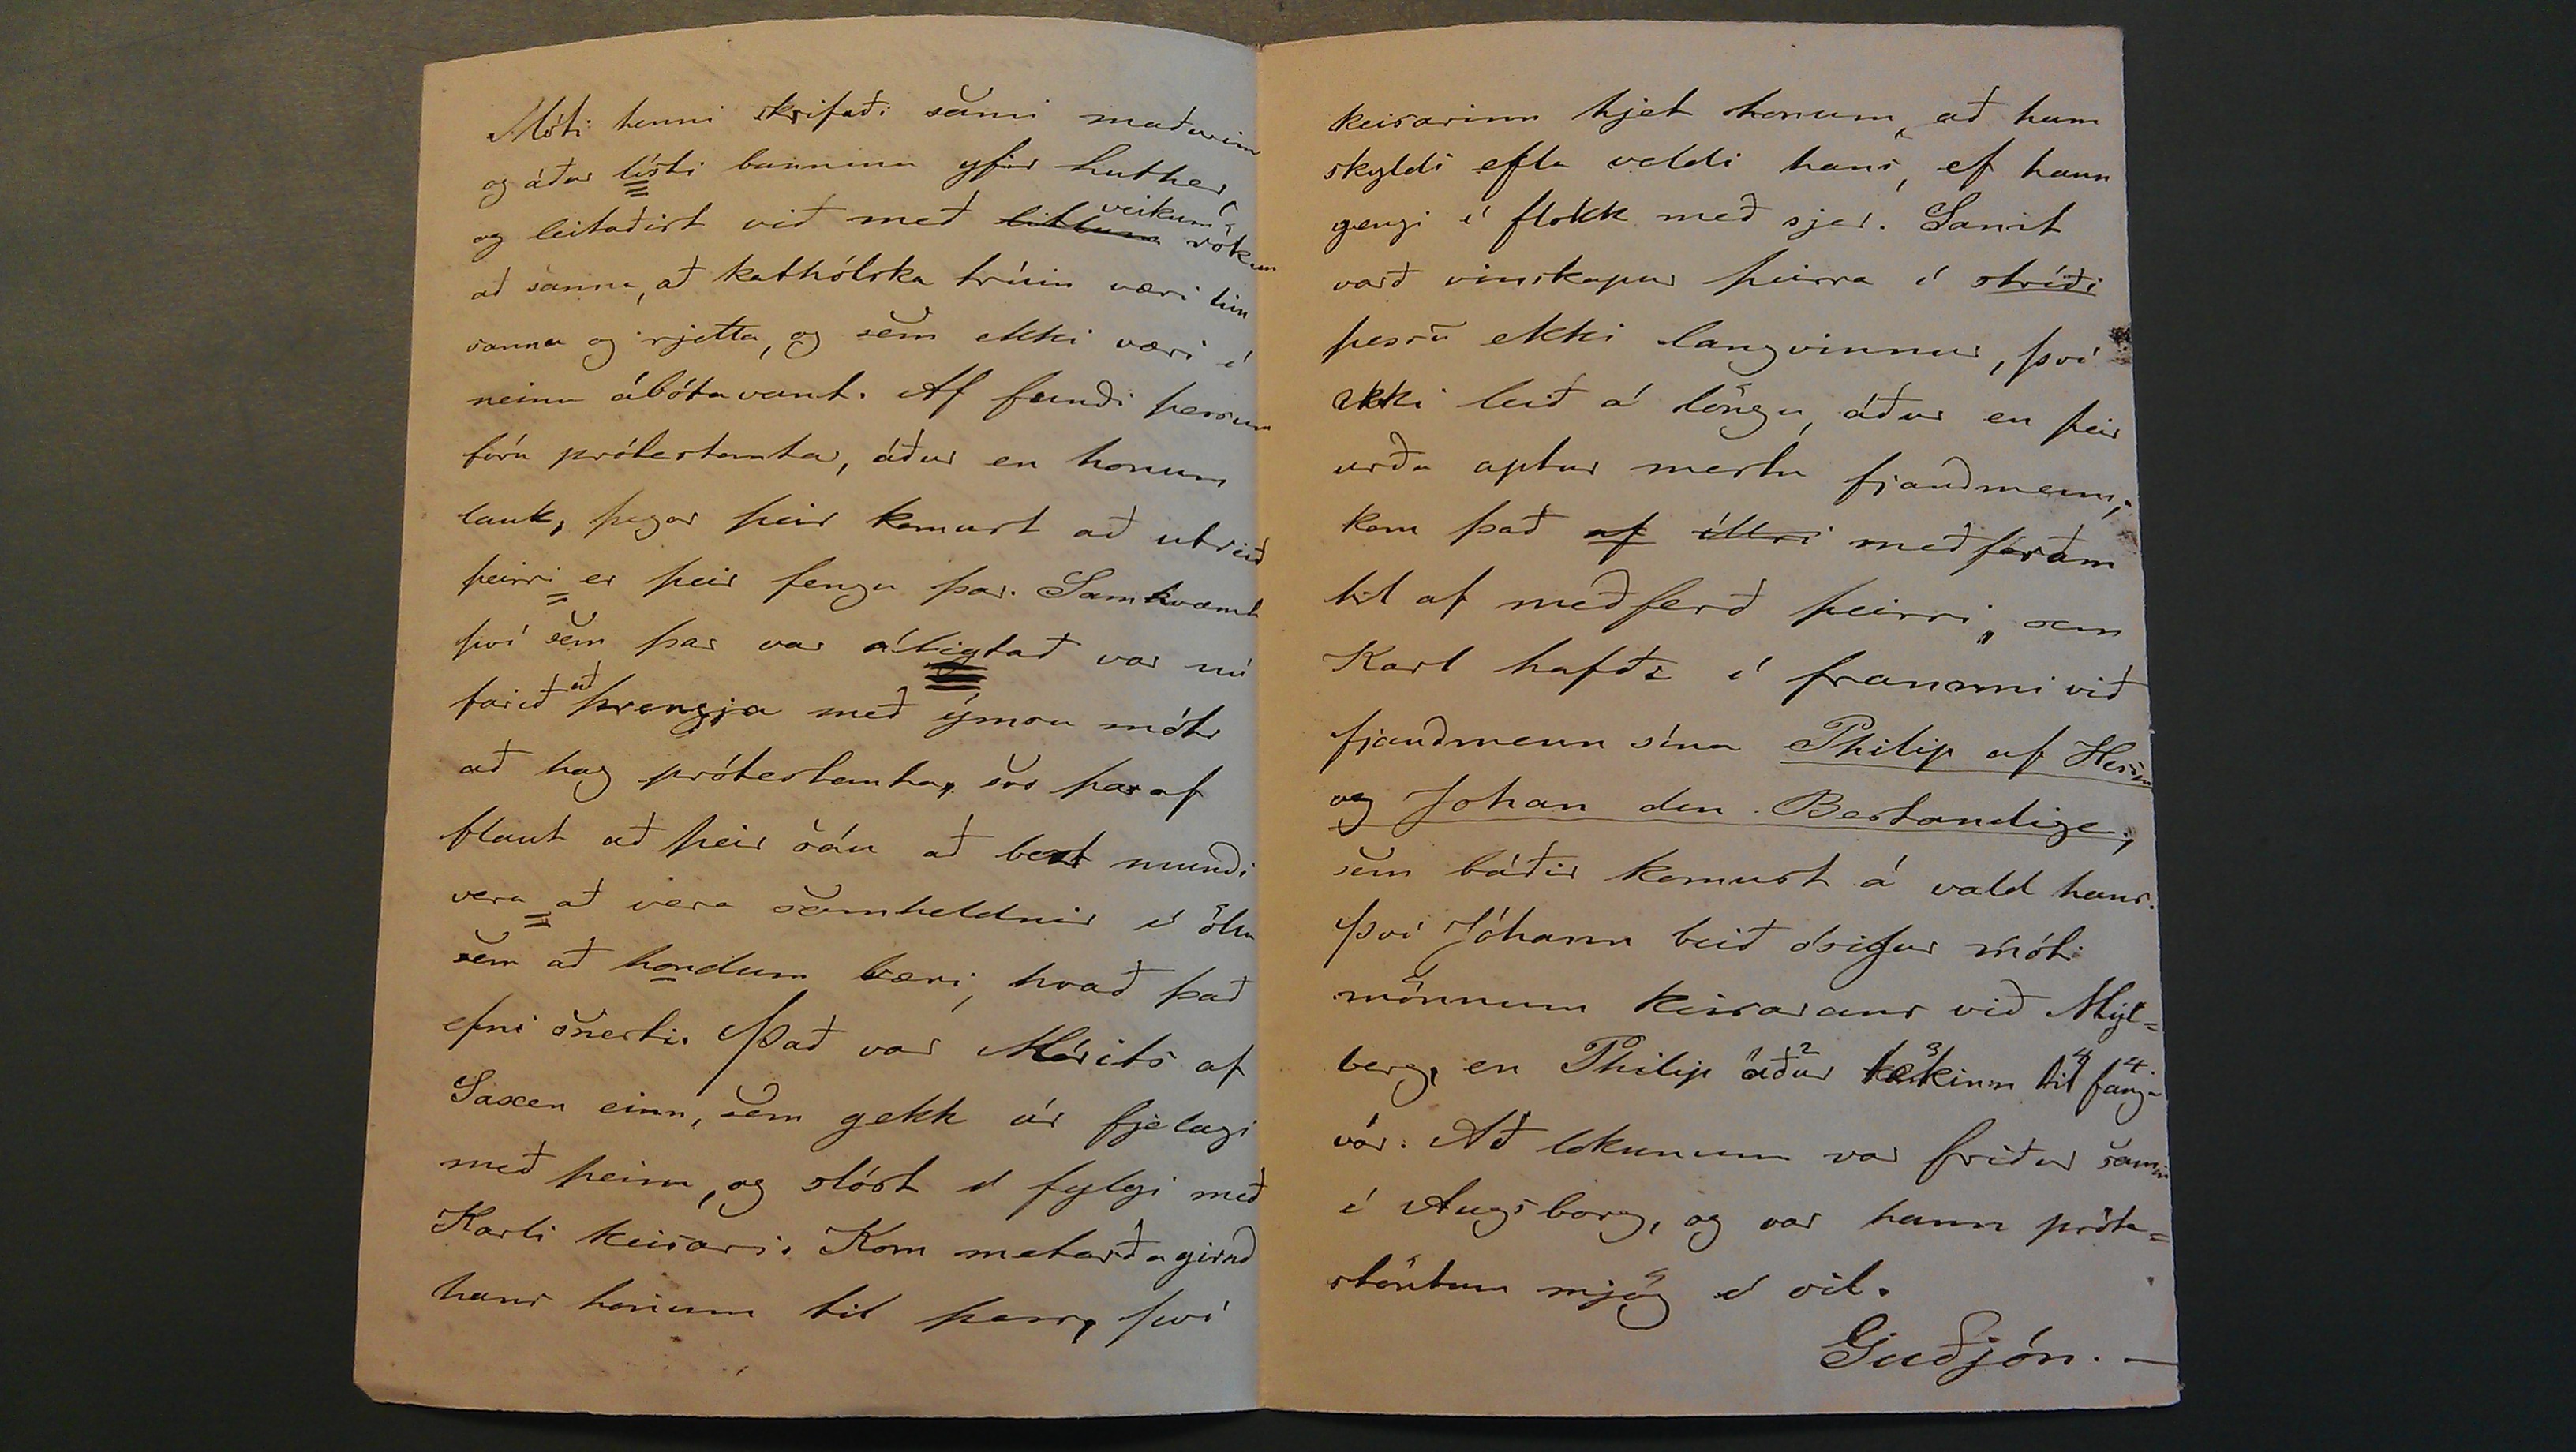 Móti henni skrifaði sami maðurinn
og áður lísti banninu yfir Luther,
og leitaðist við með litlum veikum rökum
að sanna, að kathólska trúin væri hin
sanna og rjetta, og sem ekki væri í
neinu ábótavant. Af fundi þessum
fóru prótestantar, áður en honum
lauk, þegar þeir komust að útreið
þeirri er þeir fengu þar. Samkvæmt
því sem þar var áligtað var nú
farið að þrengja með ýmsu móti
að hag prótestanta, svo þar af
flaut að þeir sáu að best mundi
vera að vera samheldnir í öllu
sem að hondum bæri, hvað það
efni snerti. Það var Mórits af
Saxen einn, sem gekk úr fjelagi
með þeim, og slóst í fylgi með
Karli keisara. Kom metorðagirnd
hans honum til þess, því
keisarinn hjet honum, að hann
skyldi efla veldi hans, ef hann
gengi í flokk með sjer. Samt
varð vinskapur þeirra í stríði
þessu ekki langvinnur, því
ekki leið á löngu, áður en þeir
urðu aptur mestu fjandmenn;
kom það af illri meðförðum
til af meðferð þeirri, sem
Karl hafði í frammi við
fjandmenn sína Philip af Hessen
og Johan den Bestandige,
sem báðir komust á vald hans.
Því Jóhann beið ósigur móti
mönnum keisarans við Mýl=
berg, en Philip áður 2 tekinn 3 til 4 fanga 4
var. Að lokunum var friður saminn
í Augsborg, og var hann próte=
stöntum mjög í vil.
Guðjón. —